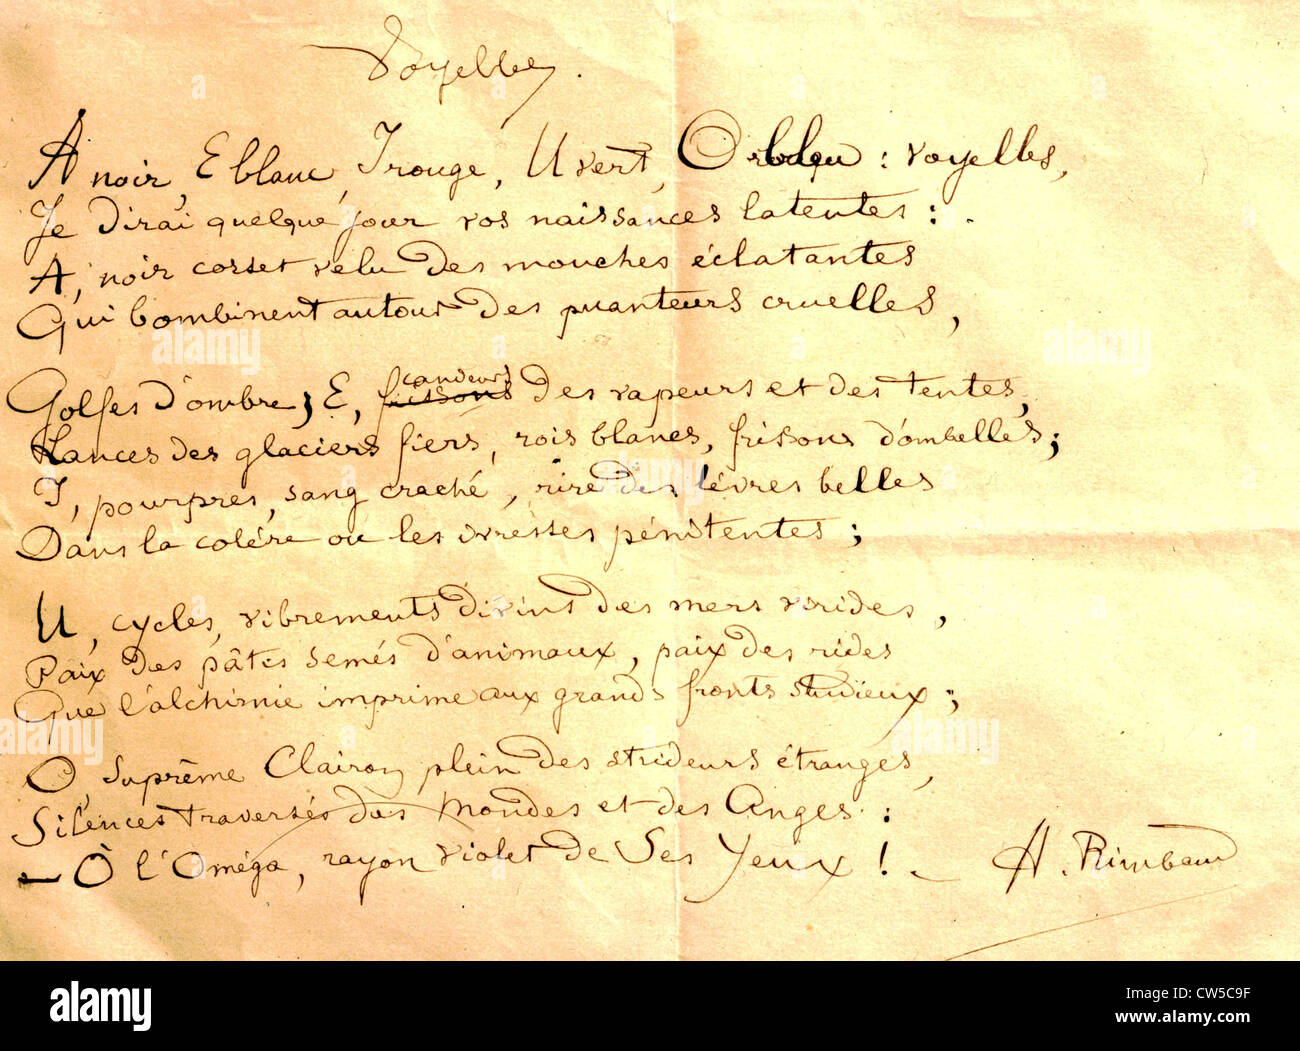 Voyelles.
A noir, E blanc, I rouge, U vert, O bleu : voyelles,
Je dirai quelque jour vos naissances latentes : .
A, noir corset velu des mouches éclatantes
Qui bombinent autour des puanteurs cruelles,
candeurs
Golfes d'ombre; E, frissons des vapeurs et des tentes,
Lances des glaciers fiers, rois blancs, frissons d'ombelles;
I, pourpres, sang craché, rire des lèvres belles
Dans la colère ou les ivresses pénitentes;
U, cycles, vibrements divins des mers virides,
Paix des pâtis semés d'animaux, paix des rides
Que l'alchimie imprime aux grands fronts studieux;
O, suprême Clairon plein des strideurs étranges,
Silences traversés des Mondes et des Anges :
– Ô l'Oméga, rayon violet de Ses Yeux ! –
A. Rimbaud
alamy
CW5C9F
www.alamy.com